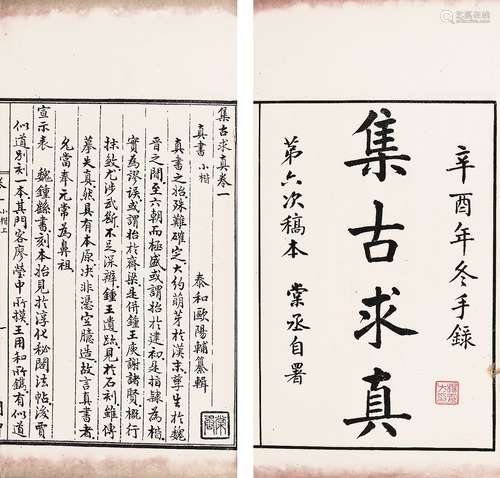 辛酉年冬手錄
集古求真
第六次稿本 棠丞自署
集古求真卷一
真書 小楷
泰和歐陽輔纂輯
真書之始殊難確定大約萌芽於漢京孳生於魏
晉之間至六朝而極盛或謂始於建初是指隸為楷
實為謬誤或謂始於齊梁是併鍾王庾謝諸賢概行
抹煞尤涉武斷不足深辨鍾王遺跡見於石刻雖傳
摹失真然具有本原决非憑空臆造故言真書者
允當奉元常為鼻祖
宣示表 魏鍾繇書刻本始見於淳化秘閣法帖後賈
似道別刻一本其門客廖瑩中所摸王用和所鐫有似道
小楷上